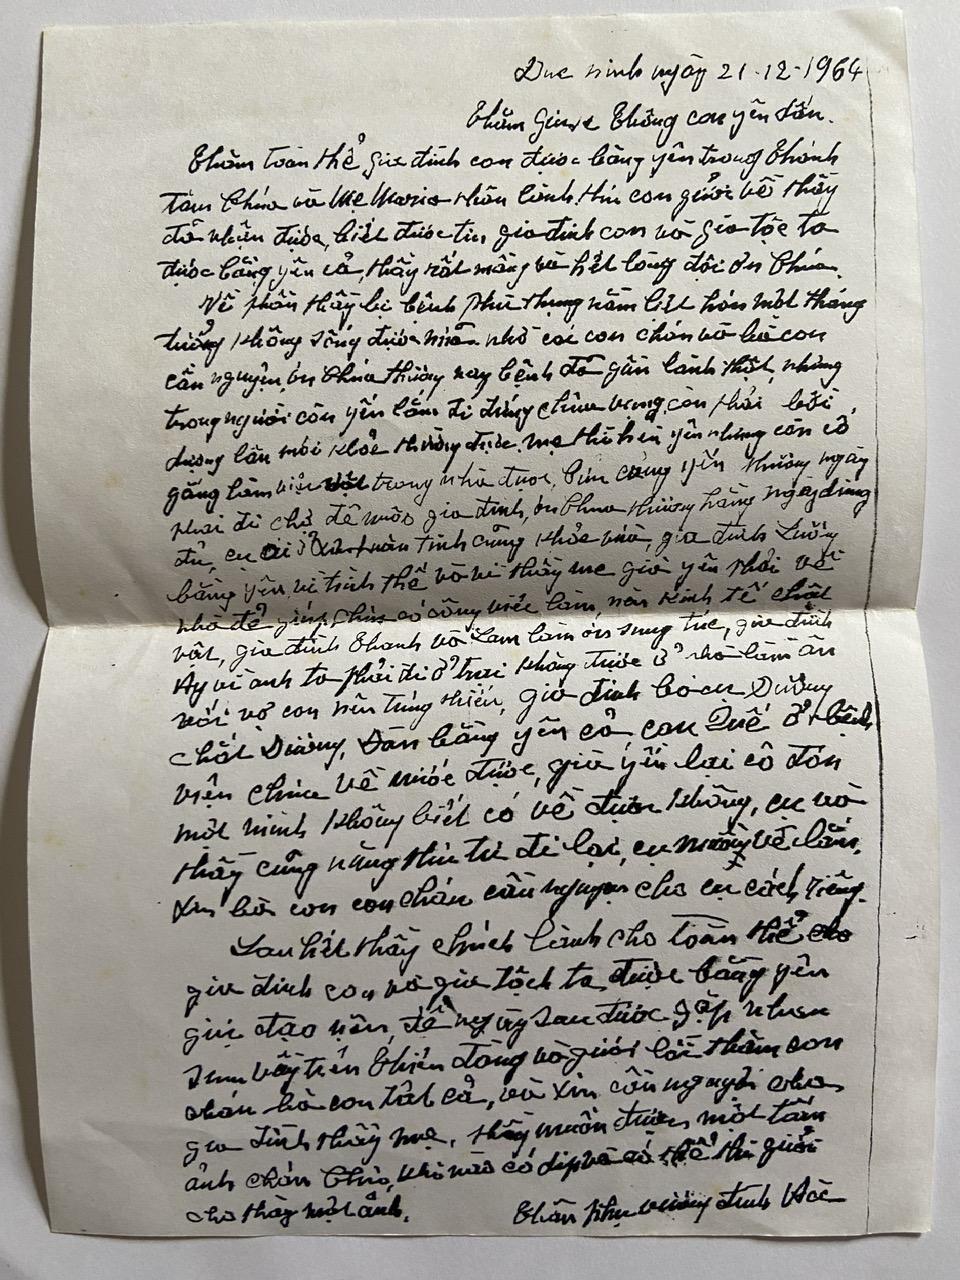 Đức ninh ngày 21-12-1964
Thăm Giuse Thông con yên dấu.
Thăm toàn thể gia đình con được bằng yên trong Thánh
tâm Chúa và Mẹ Maria nhân lành, thư con gửi về thầy
đã nhận được, biết được tin gia đình con và gia tộc ta
được bằng yên cả, thầy rất mầng và hết lòng đội ơn Chúa.
Về phần thầy bị bệnh phù thụng nằm liệt hơn một tháng
tưởng không sống được nữa nhờ các con cháu và bà con
cần nguyện, ơn Chúa thương nay bệnh đã gần lành thật, nhưng
trong người còn yếu lắm đi đứng chưa vững, còn phải bồi
dưỡng lâu mới khỏe thường được, mẹ thì hơi yếu nhưng còn cố
gắng làm việc vặt trong nhà được, cũng yếu thường ngày
phải đi chợ để nuôi gia đình, ơn Chúa thương hằng ngày dùng
đủ, cụ ở tỉnh cũng khỏe vừa, gia đình Lưỡng
bằng yên, vì tình thế và vì thầy mẹ già yếu phải về
nhà để giúp, chưa có công việc làm, nên kinh tế chật
vật, gia đình Thanh và Lam làm ăn sung túc, gia đình
Ay vì anh ta phải đi ở trại không được ở nhà làm ăn
với vợ con nên túng thiếu, gia đình bà cụ Dưỡng
chắt Dương, Đàn bằng yên cả con Quế ở bệnh
viện chưa về nước được, già yếu lại cô đơn
một mình không biết có về được không, cụ và
thầy cũng năng thư từ đi lại, cụ lắm,
xin bà con con cháu cầu nguyện cho cụ cách riêng.
Sau hết thầy chúc lành cho toàn thể
gia đình con và gia tộc ta, được bằng yên
giữ đạo nên, để ngày sau được gặp nhau
sum vầy trên thiên đàng và gửi lời thăm con
cháu bà con tất cả, và xin cầu nguyện cho
gia đình thầy mẹ, thầy muốn được một tấm
ảnh cháu Chúa, khi nào có dịp và có thể thì gửi
cho thầy một ảnh.
Thân phụ đình